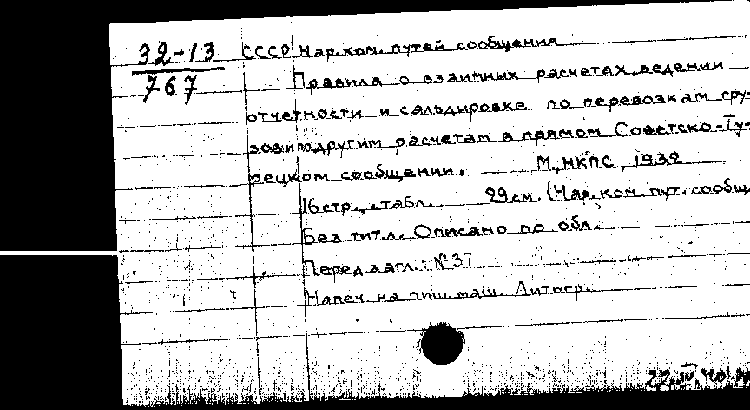 32-13
767
СССР Нар. ком. путей сообщения
Правила о взаимных расчетах, ведении
отчетности и сальдировке по перевозкам гру-
зов и по другим расчетам в прямом Советско-Ту-
рецком сообщении. М., НКПС, 1932
16 стр., табл. 29 см. (Нар. ком. пут. сообщ
Без тит. л. Описано по обл.
Перед загл.: №37
Напеч. на пиш. маш. Литогр.